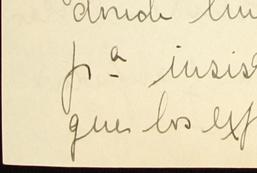 donde
pª insis
que los ex